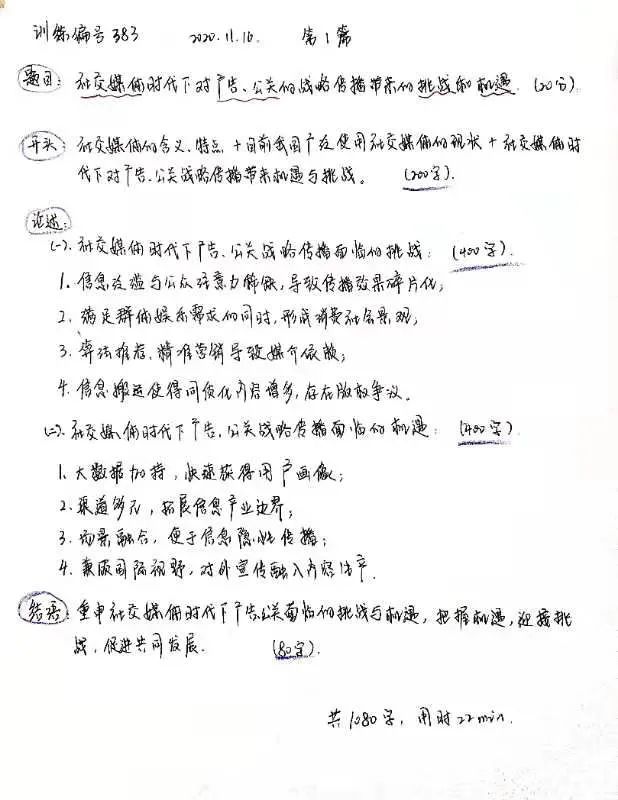 训练编号383 2020.11.16. 第1篇
题目: 社交媒体时代下对广告、公关的战略传播带来的挑战和机遇. (20分).
开头: 社交媒体的含义、特点 + 目前我国广泛使用社交媒体的现状 + 社交媒体时
代下对广告、公关战略传播带来机遇与挑战。 (200字).
论述:
(一). 社交媒体时代下广告、公关战略传播面临的挑战: (400字).
1. 信息泛滥与公众注意力稀缺, 导致传播效果碎片化;
2. 满足群体娱乐需求的同时, 形成消费社会景观;
3. 算法推荐、精准营销导致媒介依赖;
4. 信息搬运使得同质化内容增多, 存在版权争议。
(二). 社交媒体时代下广告、公关战略传播面临的机遇: (400字).
1. 大数据加持, 快速获得用户画像;
2. 渠道多元, 拓展信息产业边界;
3. 场景融合, 便于信息隐性传播;
4. 兼顾国际视野, 对外宣传融入内容生产.
结语: 重申社交媒体时代下广告公关面临的挑战与机遇, 把握机遇, 迎接挑
战, 促进共同发展. (80字).
共1080字, 用时22min.